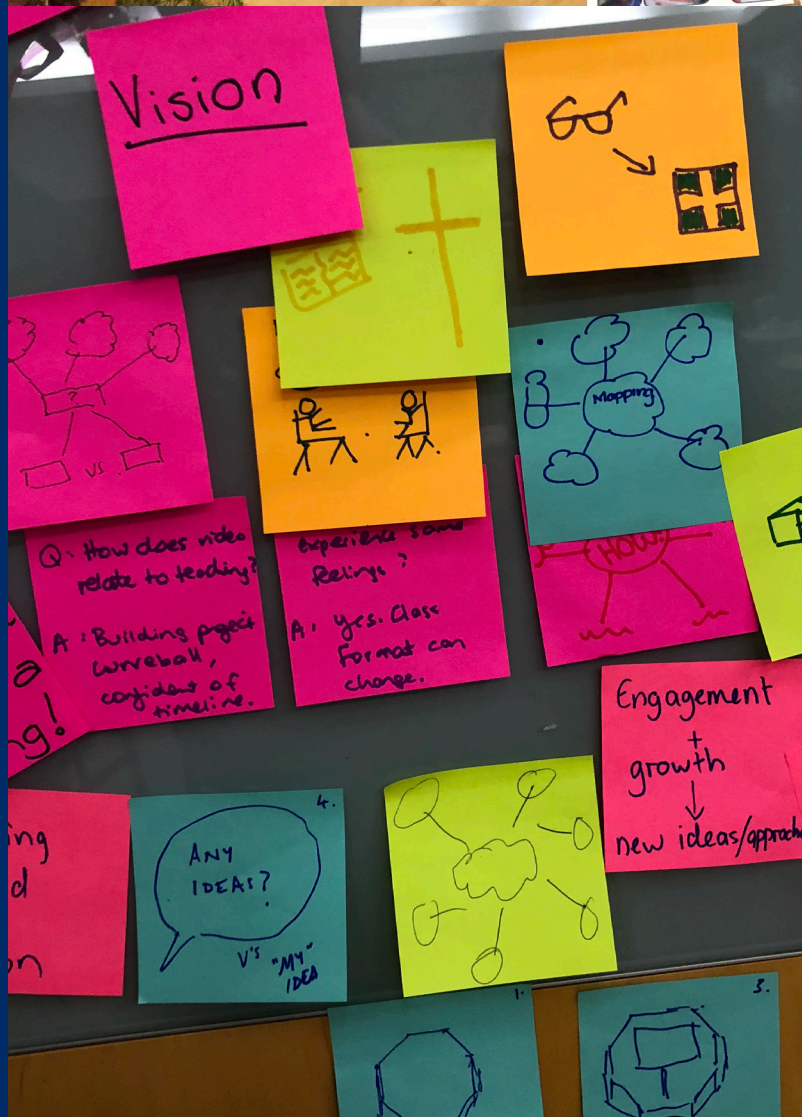 Vision
?
VS
Mapping
Q: How does video
relate to teaching?
A: Building project
curveball,
confident of
timeline.
experience some
feelings?
A: Yes. Class
Format can
change.
HOW?
a
ng!
Engagement
+
growth
new ideas/approach
ing
d
on
4.
ANY
IDEAS?
V's "MY"
IDEA
1.
3.